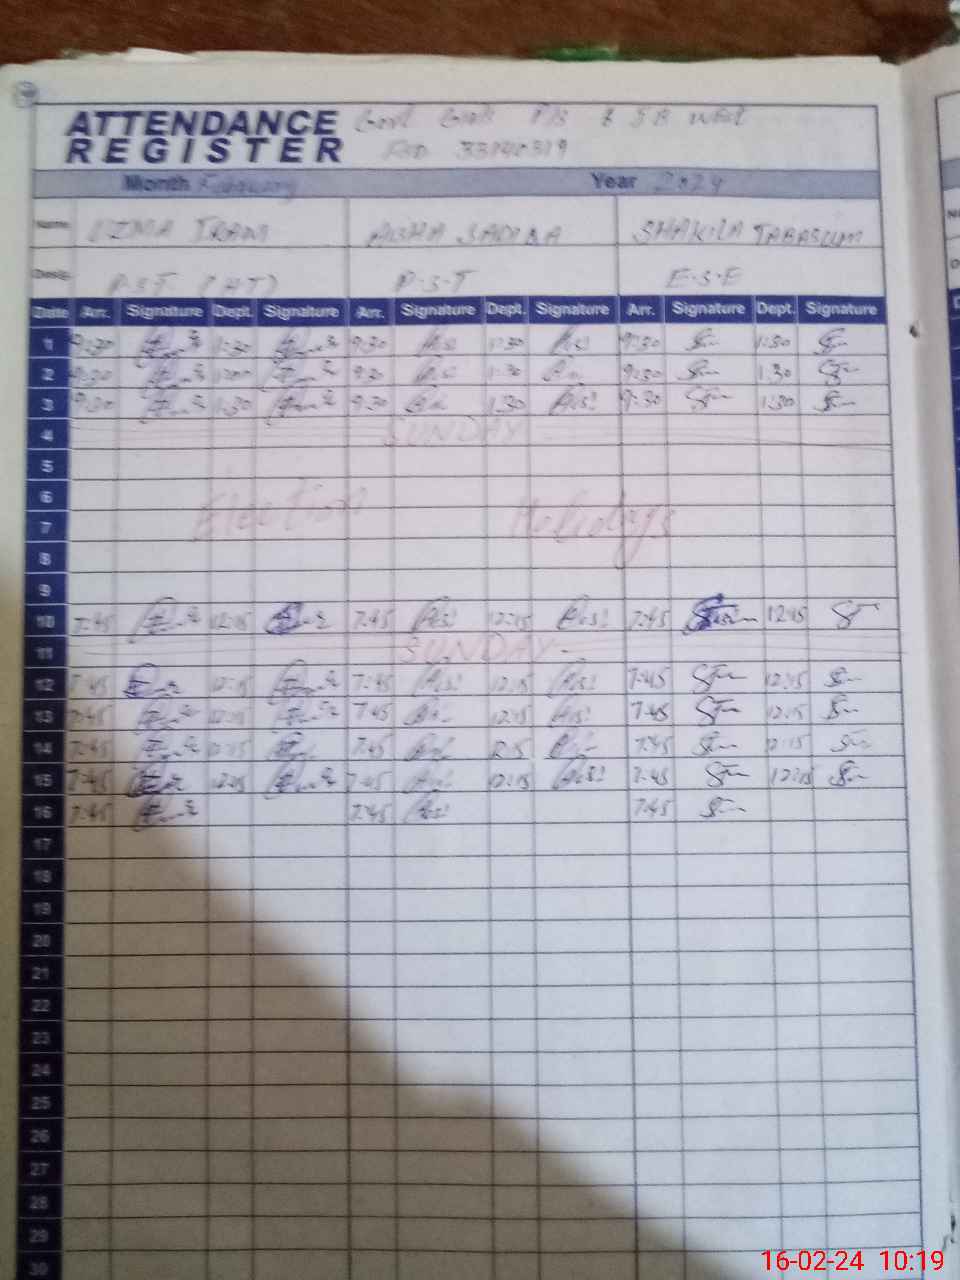 ATTENDANCE REGISTER
Govt Girls P/S
Month February Year 2024
Name IRAM SADIBA SHAKILA TABASUM
Desig: P.S.T (H.T) P.S.T E.S.E
Date Arr. Signature Dept. Signature Arr. Signature Dept. Signature Arr. Signature Dept. Signature
1 9:30 1:30 9:30 1:30 9:30 1:30
2 9:30 9:30 1:30 9:30 1:30
3 9:30 1:30 9:30 1:30 9:30 1:30
4 SUNDAY
5
6 Election
7 Holidays
8
9
10 7:45 12:15 7:45 12:15 7:45 12:15
11 SUNDAY
12 7:45 12:15 7:45 12:15 7:45 12:15
13 7:45 12:15 7:45 12:15 7:45 12:15
14 7:45 12:15 7:45 12:15 7:45 12:15
15 7:45 12:15 7:45 12:15 7:45 12:15
16 7:45 7:45 7:45
17
18
19
20
21
22
23
24
25
26
27
28
29
30
16-02-24 10:19